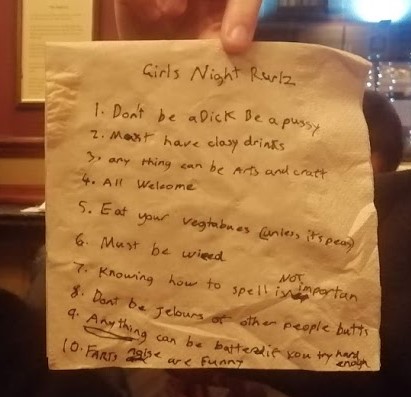 Girls Night Rurlz
1. Don't be a Dick Be a pussy
2. Must have clasy drinks
3. any thing can be Arts and craft
4. All Welcome
5. Eat your vegtabues (unless it's peas)
6. Must be wierd
7. Knowing how to spell is NOT importan
8. Dont be jelours of other people butts
9. Anything can be battered if you try hard enough
10. Farts noise are funny